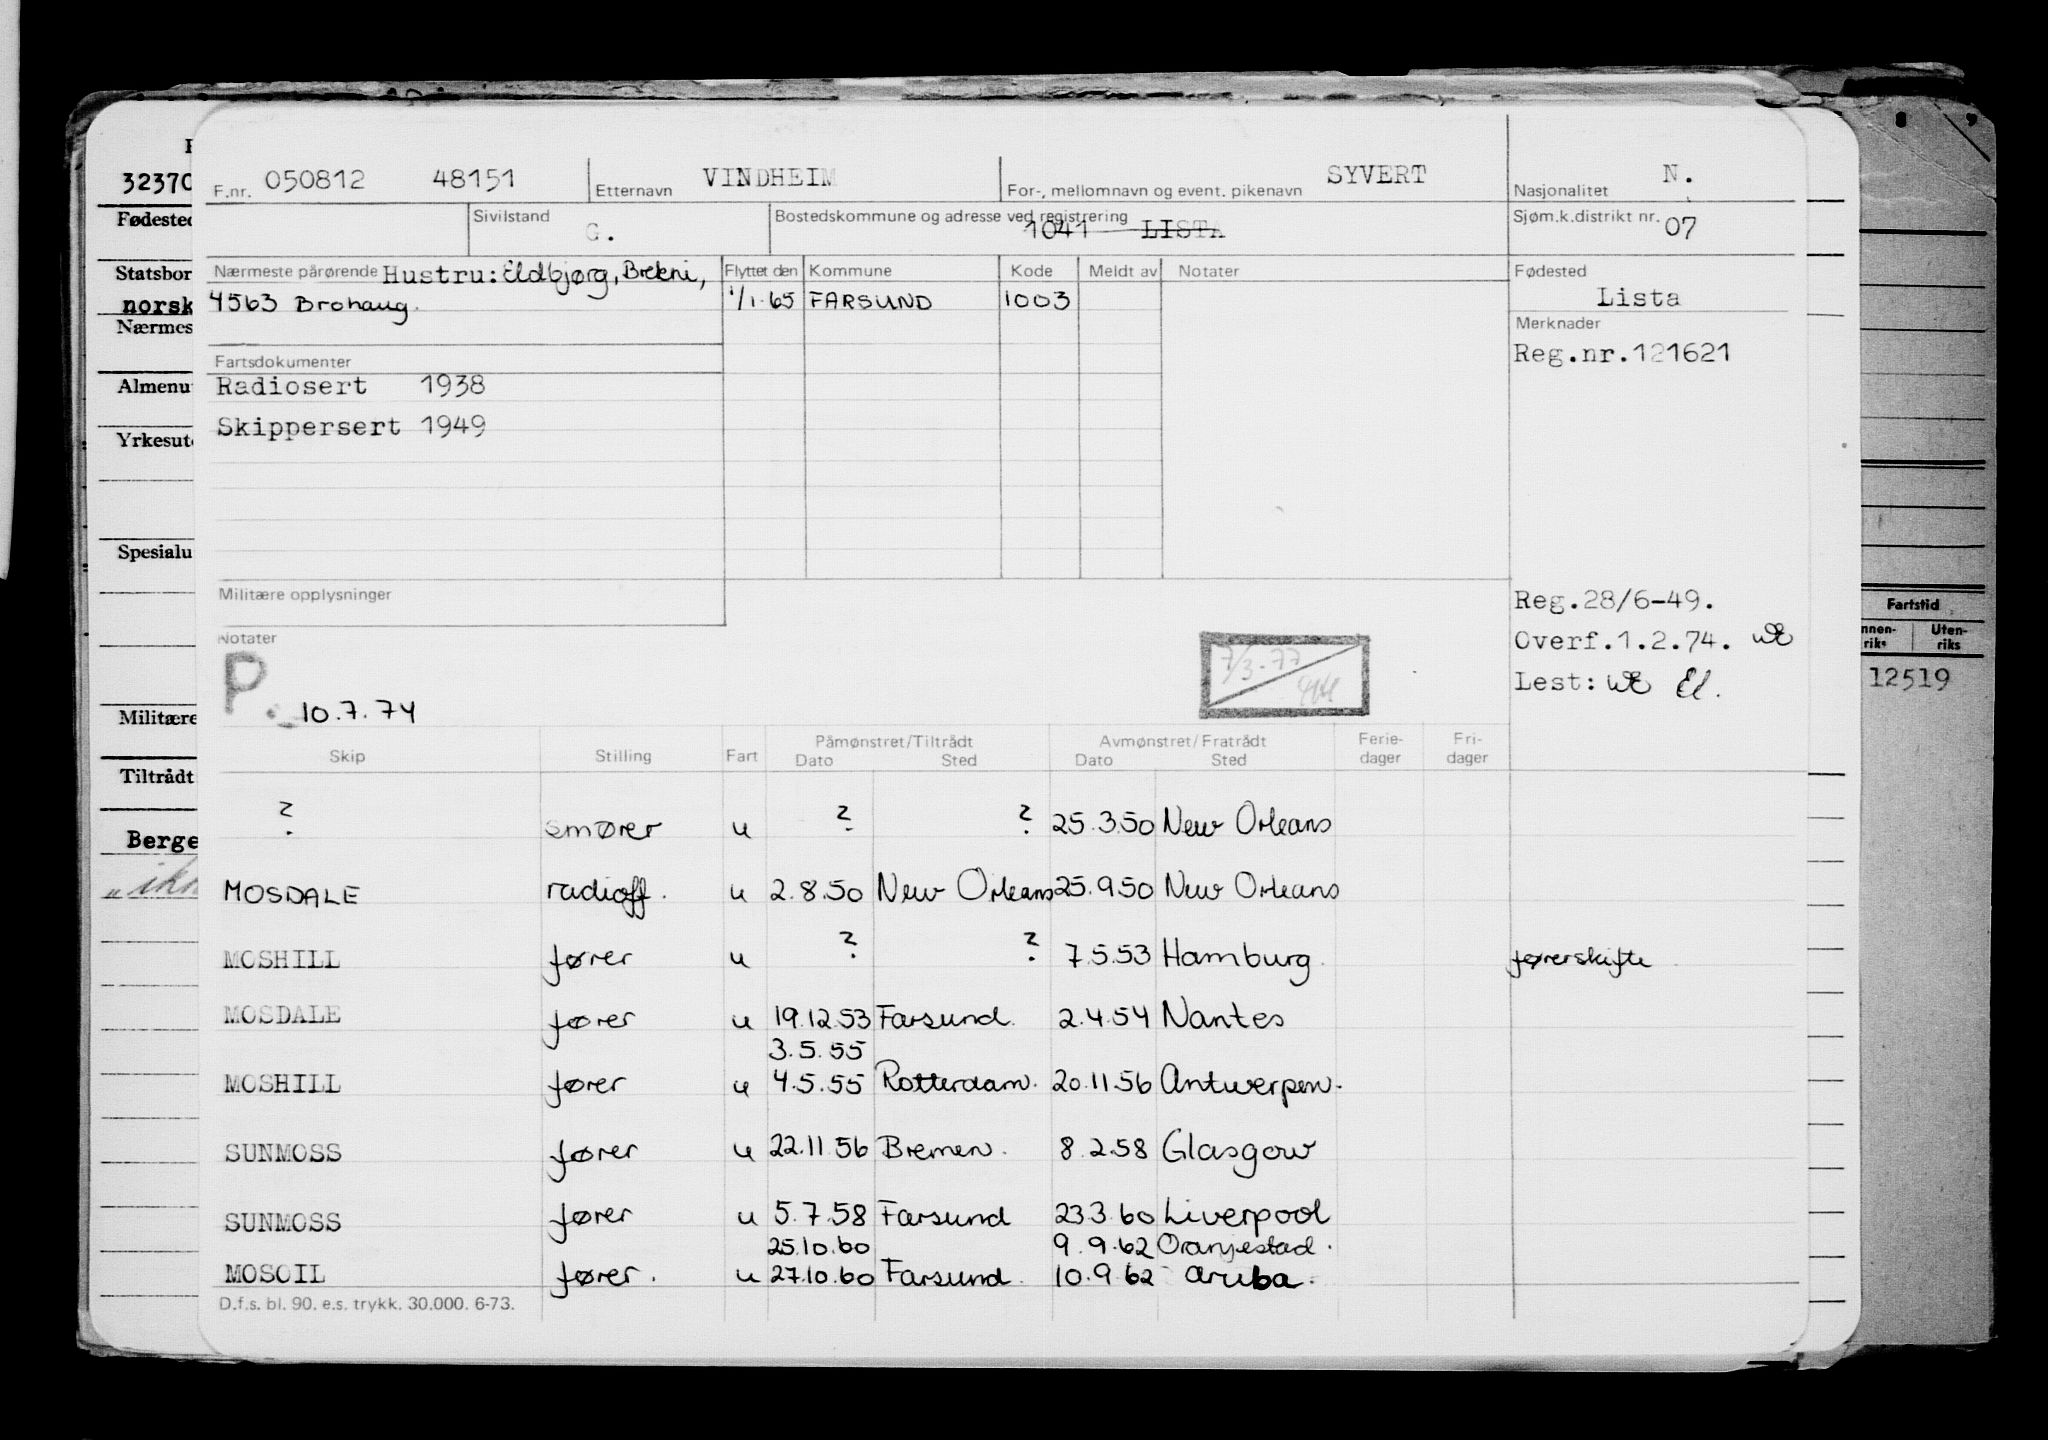 F.nr. 050812 48151 Etternavn VINDHEIM For-, mellomnavn og event. pikenavn SYVERT Nasjonalitet N.
Sivilstand G. Bostedskommune og adresse ved registrering 1041 LISTA Sjøm.k.distrikt nr. 07
Nærmeste pårørende Hustru: Eldbjørg, Brekni, Flyttet den Kommune Kode Meldt av Notater Fødested
4563 Brohaug. 1/1-65 FARSUND 1003 Lista
Merknader
Fartsdokumenter Reg.nr.121621
Radiosert 1938
Skippersert 1949
Militære opplysninger Reg.28/6-49.
Notater Overf.1.2.74. WE
P. 10.7.74 7/3-77 Lest: WE El.
Skip Stilling Fart Påmønstret/Tiltrådt Avmønstret/Fratrådt Ferie- Fri-
Dato Sted Dato Sted dager dager
? smører u ? ? 25.3.50 New Orleans
MOSDALE radioff. u 2.8.50 New Orleans 25.9.50 New Orleans
MOSHILL fører u ? ? 7.5.53 Hamburg førerskifte
MOSDALE fører u 19.12.53 Farsund. 2.4.54 Nantes
3.5.55
MOSHILL fører u 4.5.55 Rotterdam. 20.11.56 Antwerpen.
SUNMOSS fører u 22.11.56 Bremen. 8.2.58 Glasgow
SUNMOSS fører u 5.7.58 Farsund 23.3.60 Liverpool
25.10.60 9.9.62 Oranjestad.
MOSOIL fører. u 27.10.60 Farsund. 10.9.62 Aruba.
D.f.s. bl. 90. e.s. trykk. 30.000. 6-73.
32370
Fødested
Statsbor
norsk
Nærmes
Almenu
Yrkesut
Spesialu
Militære
Tiltrådt
Berge
"ikn
8 9
Fartstid
nnen-
riks Uten-
riks
12519